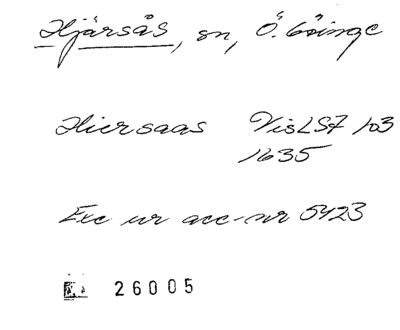 Hjärsås, sn, Ö. Göinge
Hiersaas VisLSkF 103
1635
Exc ur acc-nr 5423
26005